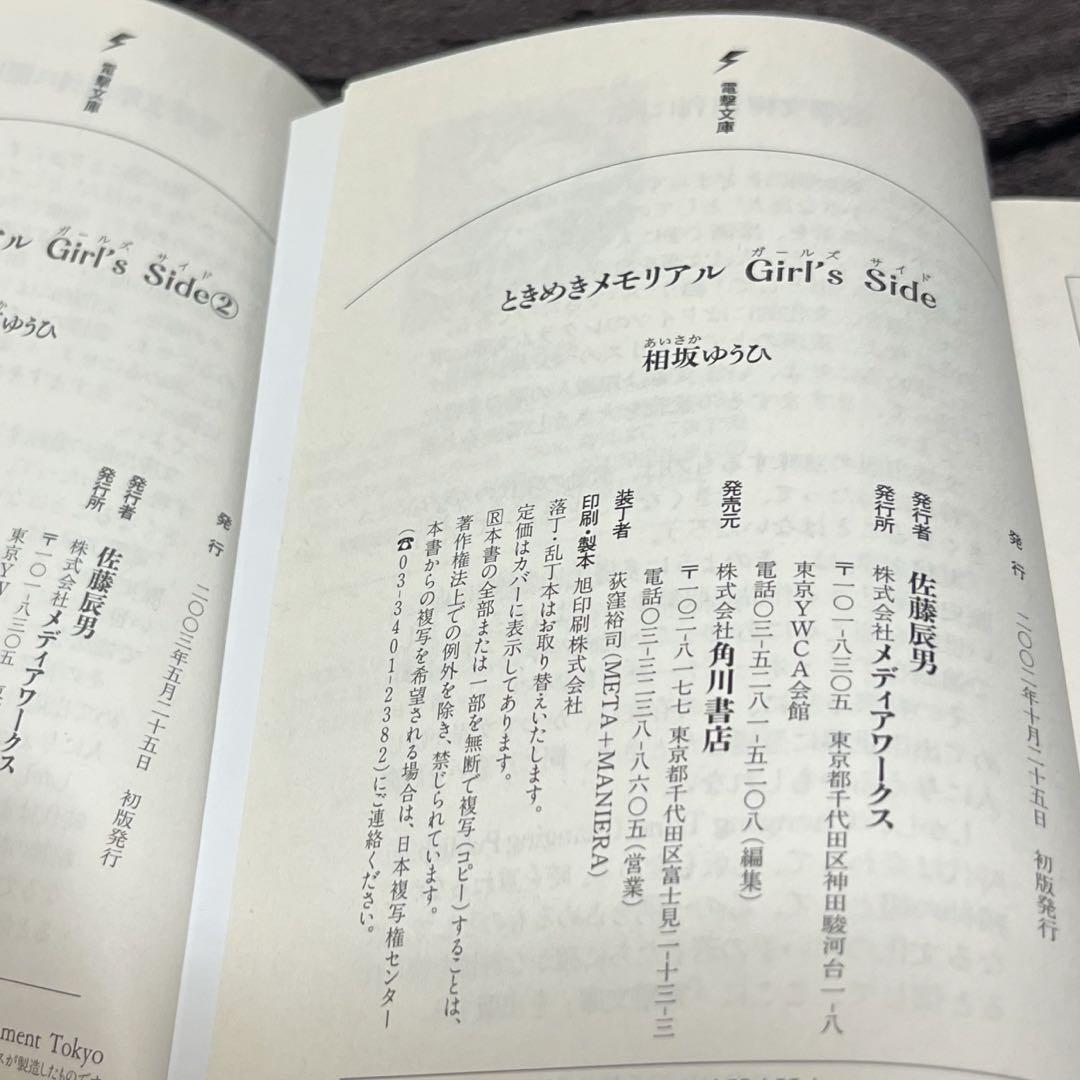 電撃文庫
ガールズ サイド
ときめきメモリアル Girl's Side
あいさか
相坂ゆうひ
発行 二〇〇二年十月二十五日 初版発行
発行者 佐藤辰男
発行所 株式会社メディアワークス
〒一〇一-八三〇五 東京都千代田区神田駿河台一-八
東京YWCA会館
電話〇三-五二八一-五二〇八(編集)
発売元 株式会社角川書店
〒一〇二-八一七七 東京都千代田区富士見二-十三-三
電話〇三-三二三八-八六〇五(営業)
装丁者 荻窪裕司(META+MANIERA)
印刷・製本 旭印刷株式会社
落丁・乱丁本はお取り替えいたします。
定価はカバーに表示してあります。
Ⓡ本書の全部または一部を無断で複写(コピー)することは、
著作権法上での例外を除き、禁じられています。
本書からの複写を希望される場合は、日本複写権センター
(☎03-3401-2382)にご連絡ください。
電撃文庫
ガールズ サイド
ル Girl's Side②
ゆうひ
発行 二〇〇三年五月二十五日 初版発行
発行者 佐藤辰男
発行所 株式会社メディアワークス
〒一〇一-八三〇五
東京YW
ment Tokyo
スが製造したものです